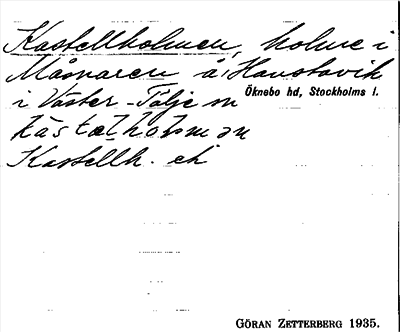 Kastellholmen, holme i
Måsnaren å, Havstavik
i Väster-Tälje sn
Öknebo hd, Stockholms l.
kastelholmən
Kastellh. ek
GÖRAN ZETTERBERG 1935.